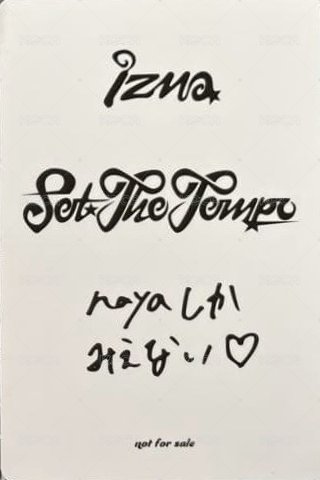 izna
Set The Tempo
nayaしか
みえない♡
not for sale